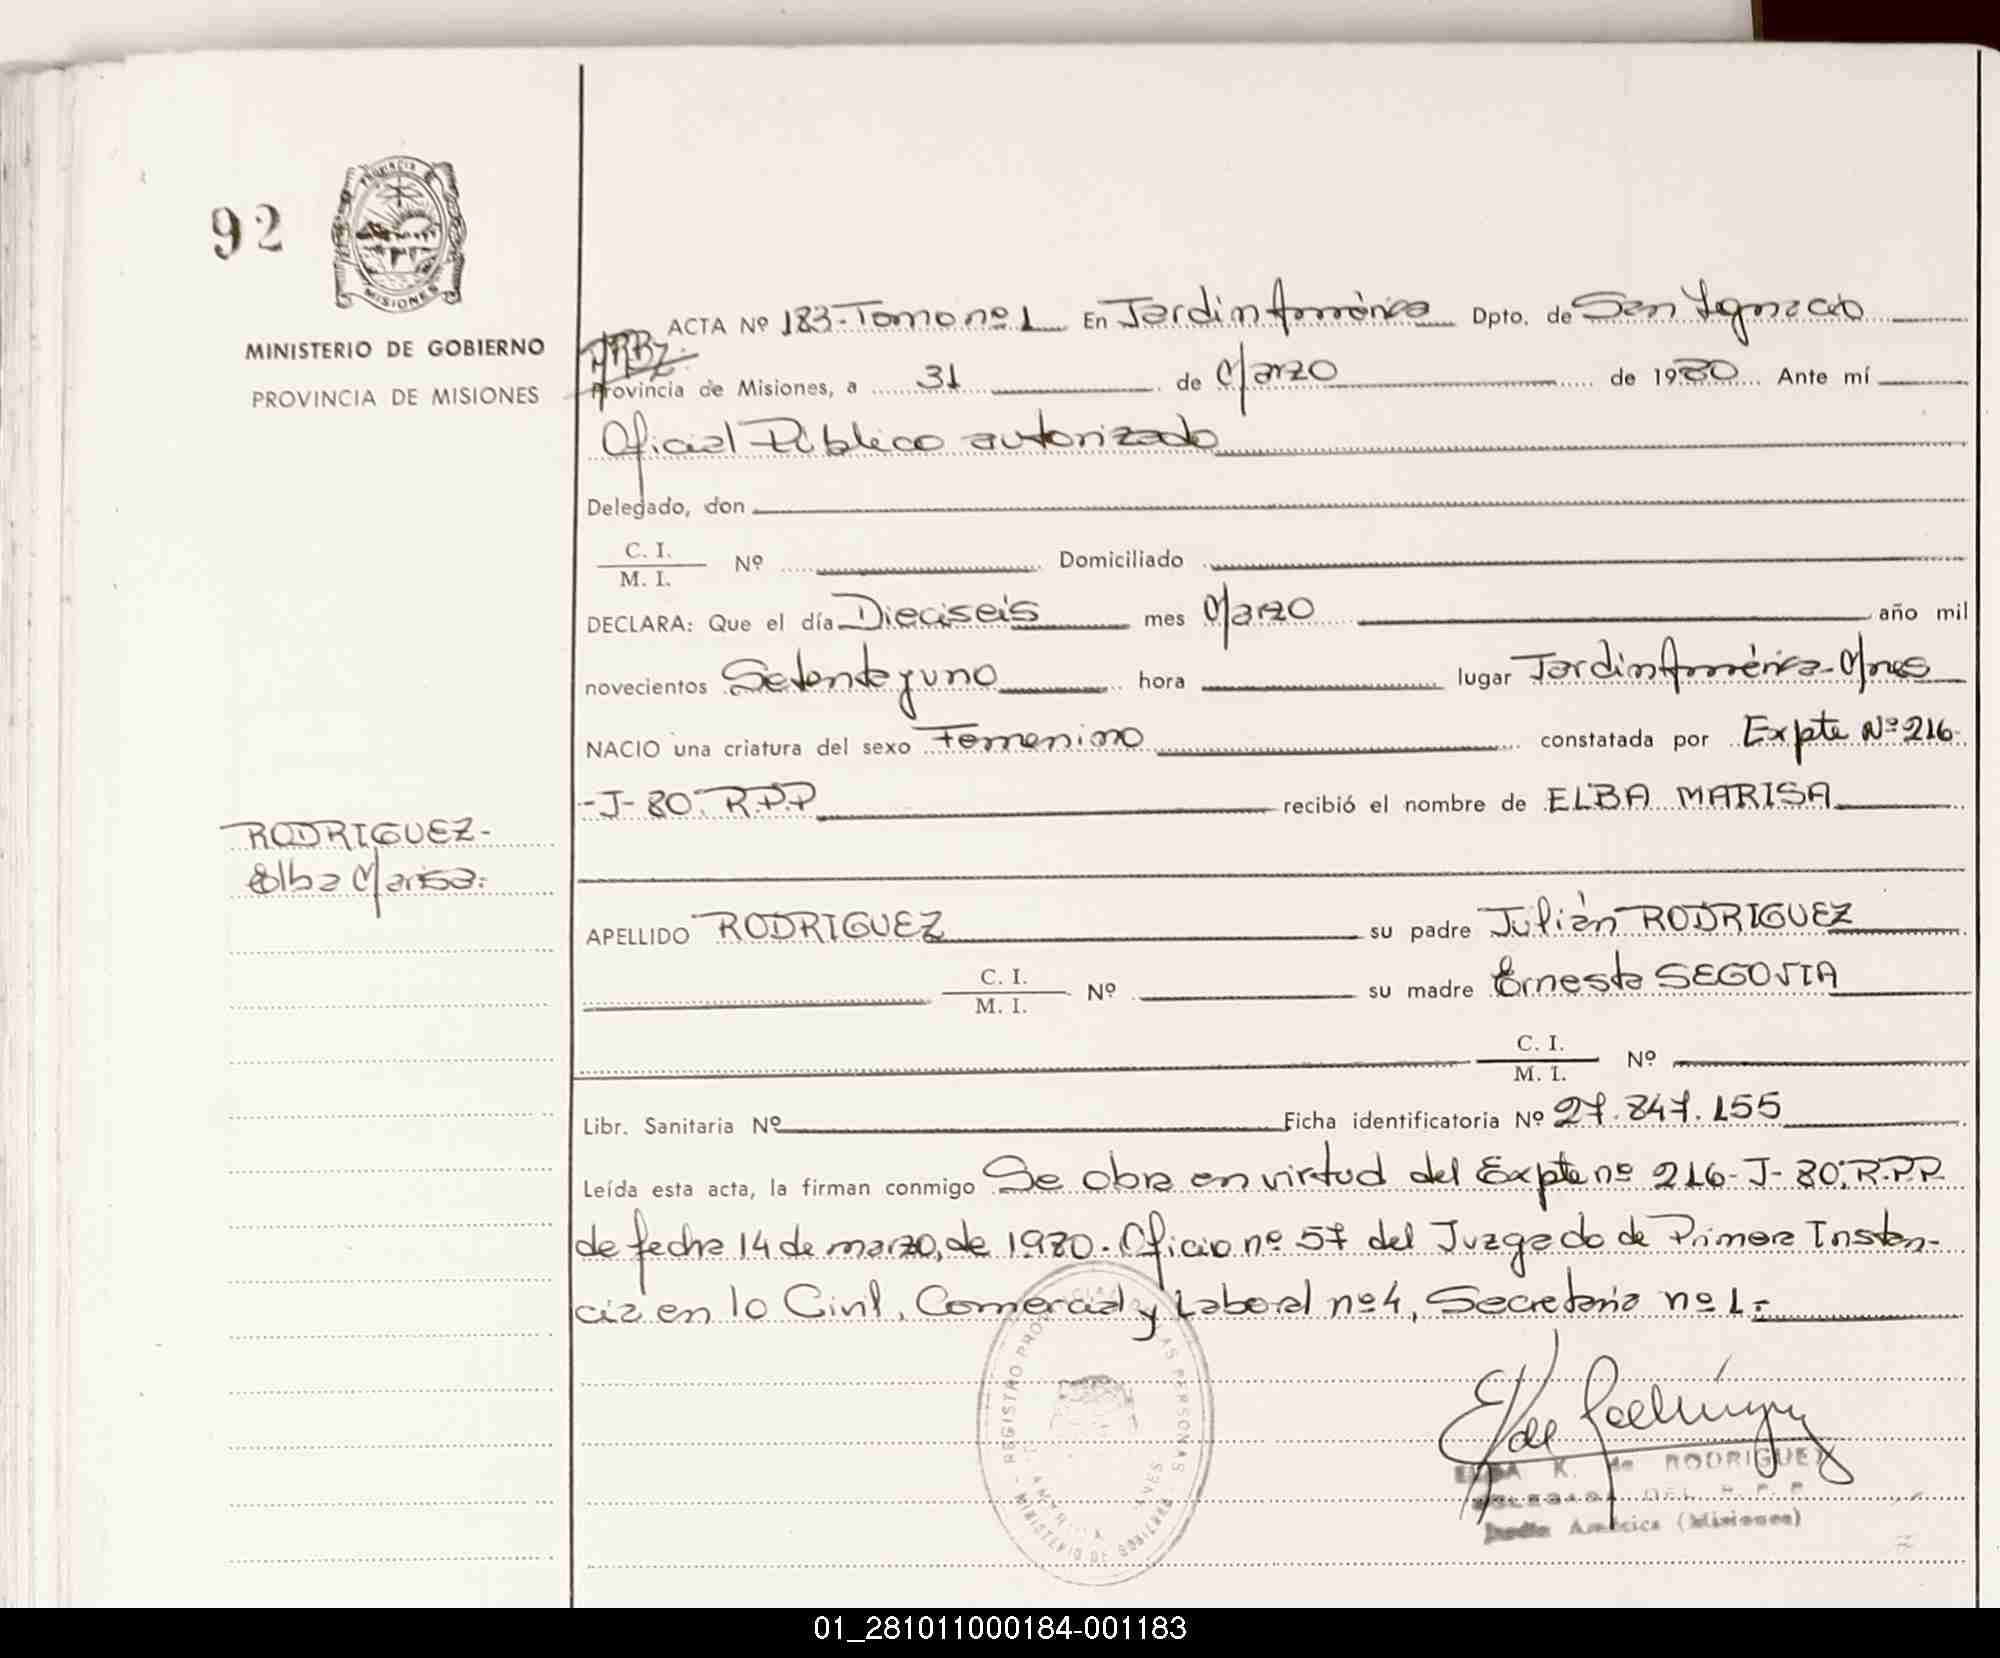 92
PROVINCIA
MISIONES
MINISTERIO DE GOBIERNO
PROVINCIA DE MISIONES
RODRIGUEZ-
Elba Marisa.
ACTA Nº 183-Tomo nº 1 En Jardin América Dpto. de San Ignacio
Provincia de Misiones, a 31 de Marzo de 1980 Ante mí
Oficial Público autorizado
Delegado, don
C. I.
M. I. Nº Domiciliado
DECLARA: Que el día Dieciseis mes Marzo año mil
novecientos Setenta y uno hora lugar Jardin América-Mnes
NACIO una criatura del sexo Femenino constatada por Expte Nº 216-
-J-80. R.P.P recibió el nombre de ELBA MARISA
APELLIDO RODRIGUEZ su padre Julián RODRIGUEZ
C. I.
M. I. Nº su madre Ernesta SEGOVIA
C. I.
M. I. Nº
Libr. Sanitaria Nº Ficha identificatoria Nº 27.847.155
Leída esta acta, la firman conmigo Se obra en virtud del Expte nº 216-J-80. R.P.P.
de fecha 14 de marzo, de 1980. Oficio nº 57 del Juzgado de Primera Instan-
cia en lo Civil, Comercial y Laboral nº 4, Secretaria nº 1.-
REGISTRO PERSONAS
ELBA K. de RODRIGUEZ
DELEGADA DEL R. P. P.
Jardín América (Misiones)
01_281011000184-001183